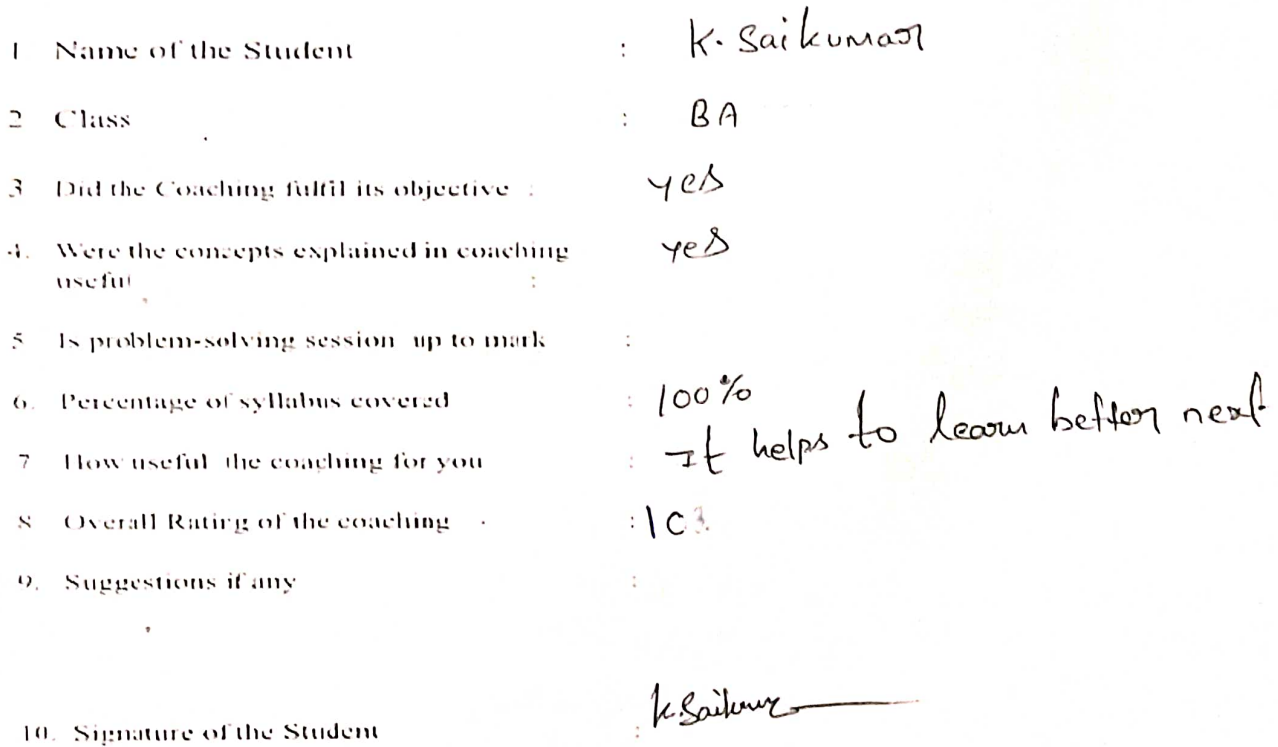 1 Name of the Student : K. Saikumar
2 Class : BA
3 Did the Coaching fulfil its objective : yes
4. Were the concepts explained in coaching yes
useful :
5 Is problem-solving session up to mark :
6. Percentage of syllabus covered : 100%
7 How useful the coaching for you : It helps to learn better next
8 Overall Rating of the coaching :
9. Suggestions if any :
10. Signature of the Student : K. Saikumar